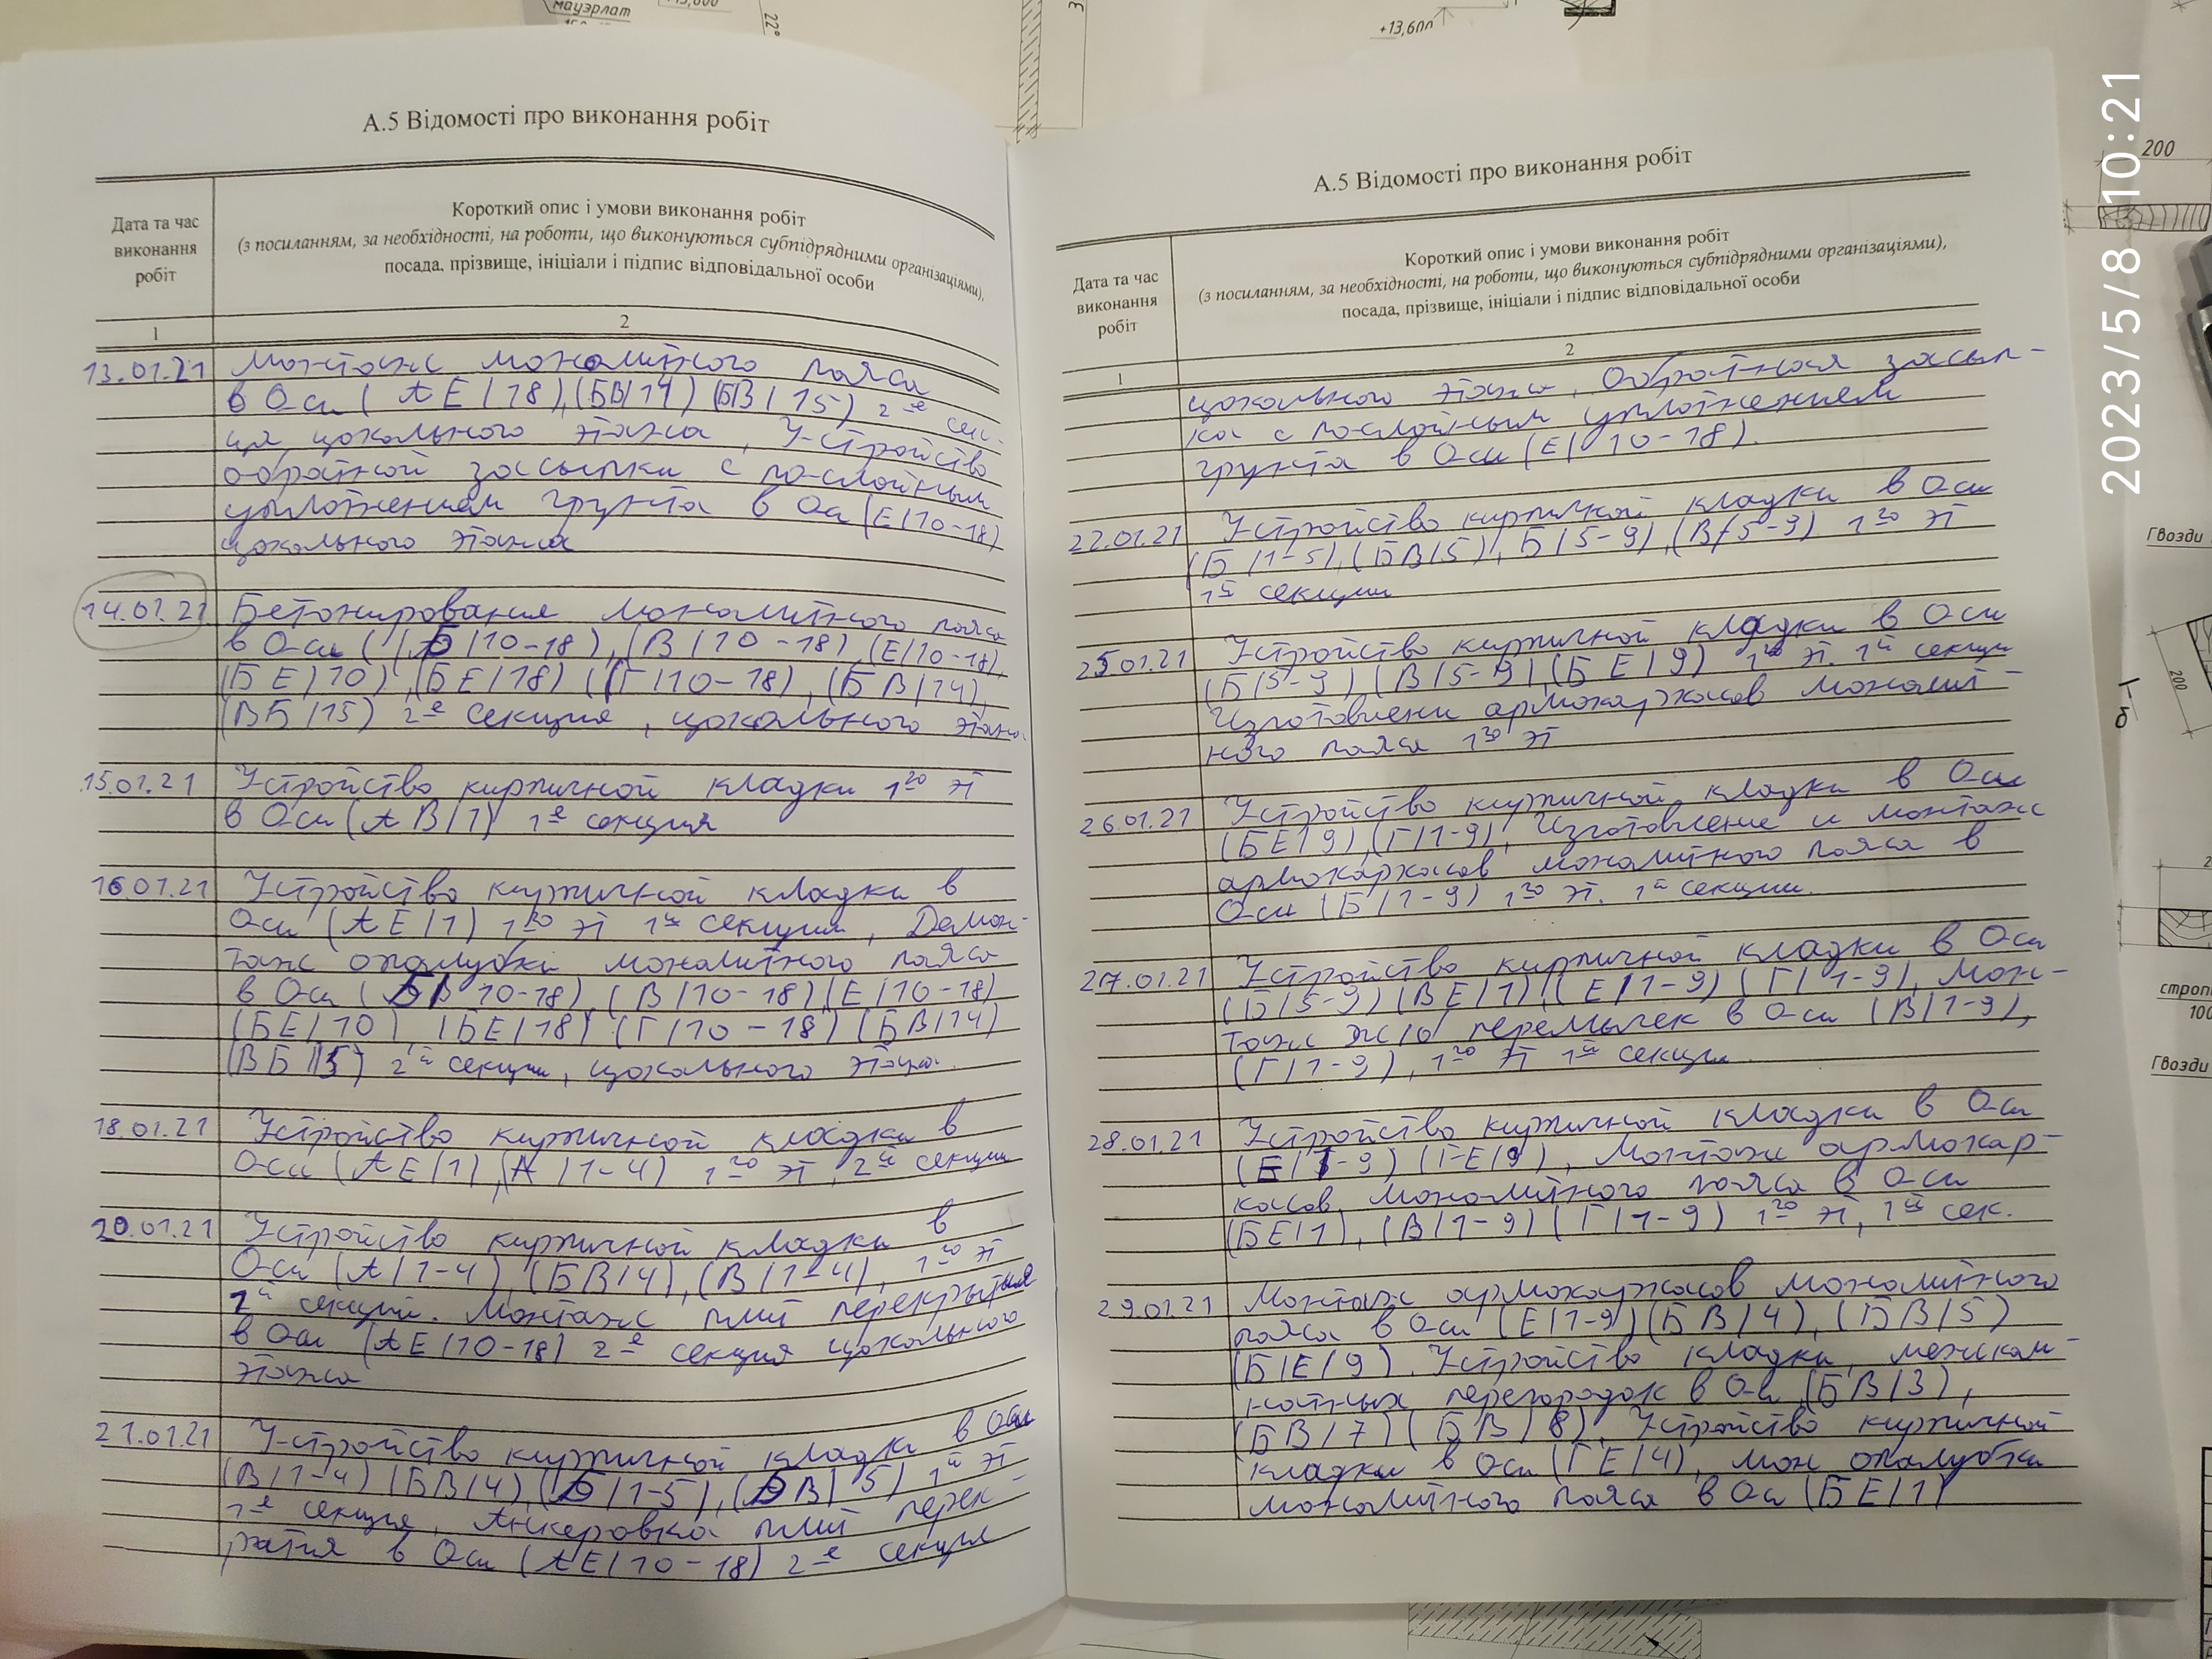 мауэрлат
+13,600
22°
3
200
2023/5/8 10:21
А.5 Відомості про виконання робіт
Дата та час
виконання
робіт
Короткий опис і умови виконання робіт
(з посиланням, за необхідності, на роботи, що виконуються субпідрядними організаціями),
посада, прізвище, ініціали і підпис відповідальної особи
1
2
13.01.21 Монтаж монолитного пояса
в Оси (АЕ/18),(БВ/14) (БВ/15) 2-е сек-
ция цокольного этажа, Устройство
обратной зассыпки с по-слойным
уплотнением грунта в Оси (Е/10-18)
цокольного этажа
14.01.21 Бетонирования монолитного пояса
в Оси (Б/10-18), (В/10-18) (Е/10-18),
(БЕ/10), (БЕ/18) (Г/10-18), (БВ/14),
(ВБ/15) 2-е секция, цокольного этажа.
15.01.21 Устройство кирпичной кладки 1го эт
в Оси (АВ/1) 1-е секция
16.01.21 Устройство кирпичной кладки в
Оси (АЕ/1) 1го эт 1й секции, Демон-
таж опалубки монолитного пояса
в Оси (БВ 10-18), (В/10-18) (Е/10-18)
(БЕ/10) (БЕ/18) (Г/10-18) (БВ/14)
(ВБ/15) 2й секции, цокольного этажа.
18.01.21 Устройство кирпичной кладки в
Оси (АЕ/1), (А/1-4) 1го эт, 2й секции
20.01.21 Устройство кирпичной кладки в
Оси (А/1-4), (БВ/4), (В/1-4), 1го эт
1й секции. Монтаж плит перекрытия
в Оси (АЕ/10-18) 2-е секция цокольного
этажа
21.01.21 Устройство кирпичной кладки в Оси
(В/1-4) (БВ/4), (Б/1-5), (БВ/5) 1й эт
1-е секция, Анкеровка плит перек-
рытия в Оси (АЕ/10-18) 2-е секция
А.5 Відомості про виконання робіт
Дата та час
виконання
робіт
Короткий опис і умови виконання робіт
(з посиланням, за необхідності, на роботи, що виконуються субпідрядними організаціями),
посада, прізвище, ініціали і підпис відповідальної особи
1
2
цокольного этажа, Обратная засып-
ка с по-слойным уплотнением
грунта в Оси (Е/10-18).
22.01.21 Устройство кирпичной кладки в Оси
(Б/1-5), (БВ/5), Б/5-9), (В/5-9) 1го эт
1й секции
25.01.21 Устройство кирпичной кладки в Оси
(Б/5-9) (В/5-9) (БЕ/9) 1го эт. 1й секции
Изготовлени армокаркасов монолит-
ного пояса 1го эт
26.01.21 Устройство кирпичной кладки в Оси
(БЕ/9), (Г/1-9), Изготовление и монтаж
армокаркасов монолитного пояса в
Оси (Б/1-9) 1го эт. 1й секции.
27.01.21 Устройство кирпичной кладки в Оси
(Б/5-9) (ВЕ/1), (Е/1-9) (Г/1-9), Мон-
таж ж/б перемычек в Оси (В/1-9),
(Г/1-9), 1го эт 1й секции
28.01.21 Устройство кирпичной кладки в Оси
(Е/1-9) (ГЕ/9), Монтаж армокар-
касов, монолитного пояса в Оси
(БЕ/1), (В/1-9) (Г/1-9) 1го эт, 1й сек.
29.01.21 Монтаж армокаркасов монолитного
пояса в Оси (Е/1-9) (БВ/4), (БВ/5)
(Б/Е/9). Устройство кладки, межком-
натных перегородок в Оси (БВ/3),
(БВ/7) (БВ/8), Устройство кирпичной
кладки в Оси (ГЕ/4), мон опалубки
монолитного пояса в Оси (БЕ/1)
Гвозди
200
б
строп
100
Гвозди